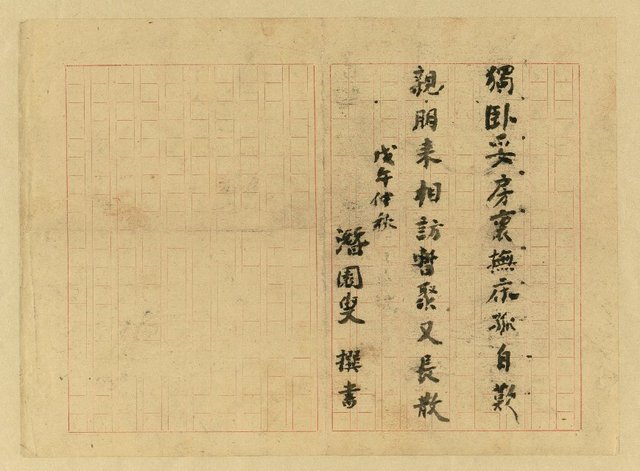 獨臥妥房裏撫床孤自歎
親朋来相訪暫聚又長散
戊午仲秋
潛園叟 撰書